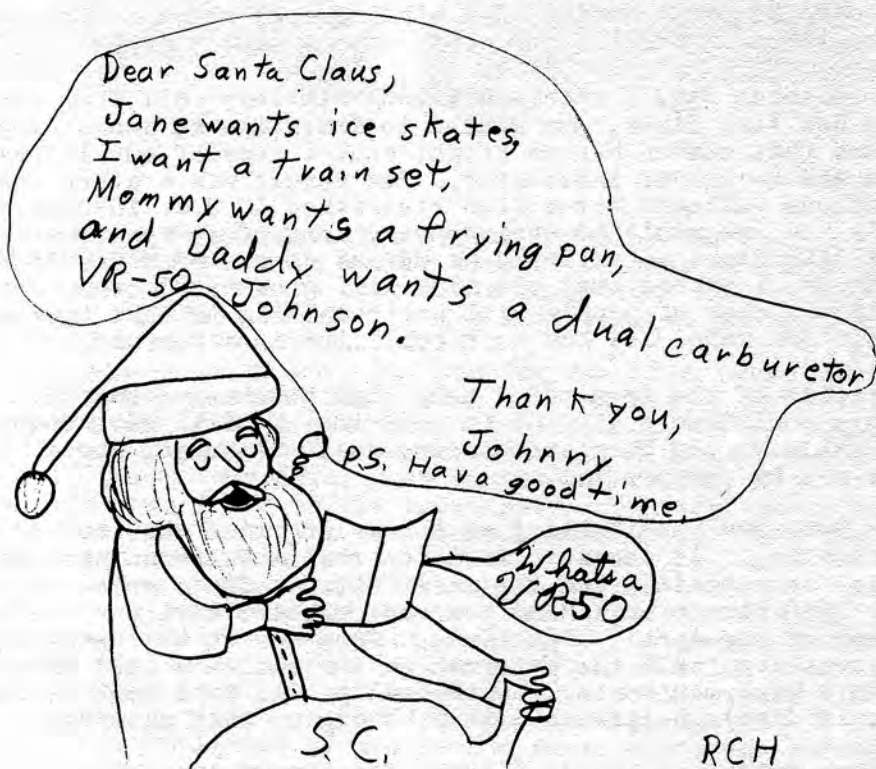 Dear Santa Claus,
Jane wants ice skates,
I want a train set,
Mommy wants a frying pan,
and Daddy wants a dual carburetor
VR-50 Johnson.
Thank you,
Johnny
P.S. Hava good time.
Whats a
VR-50
S.C.
RCH